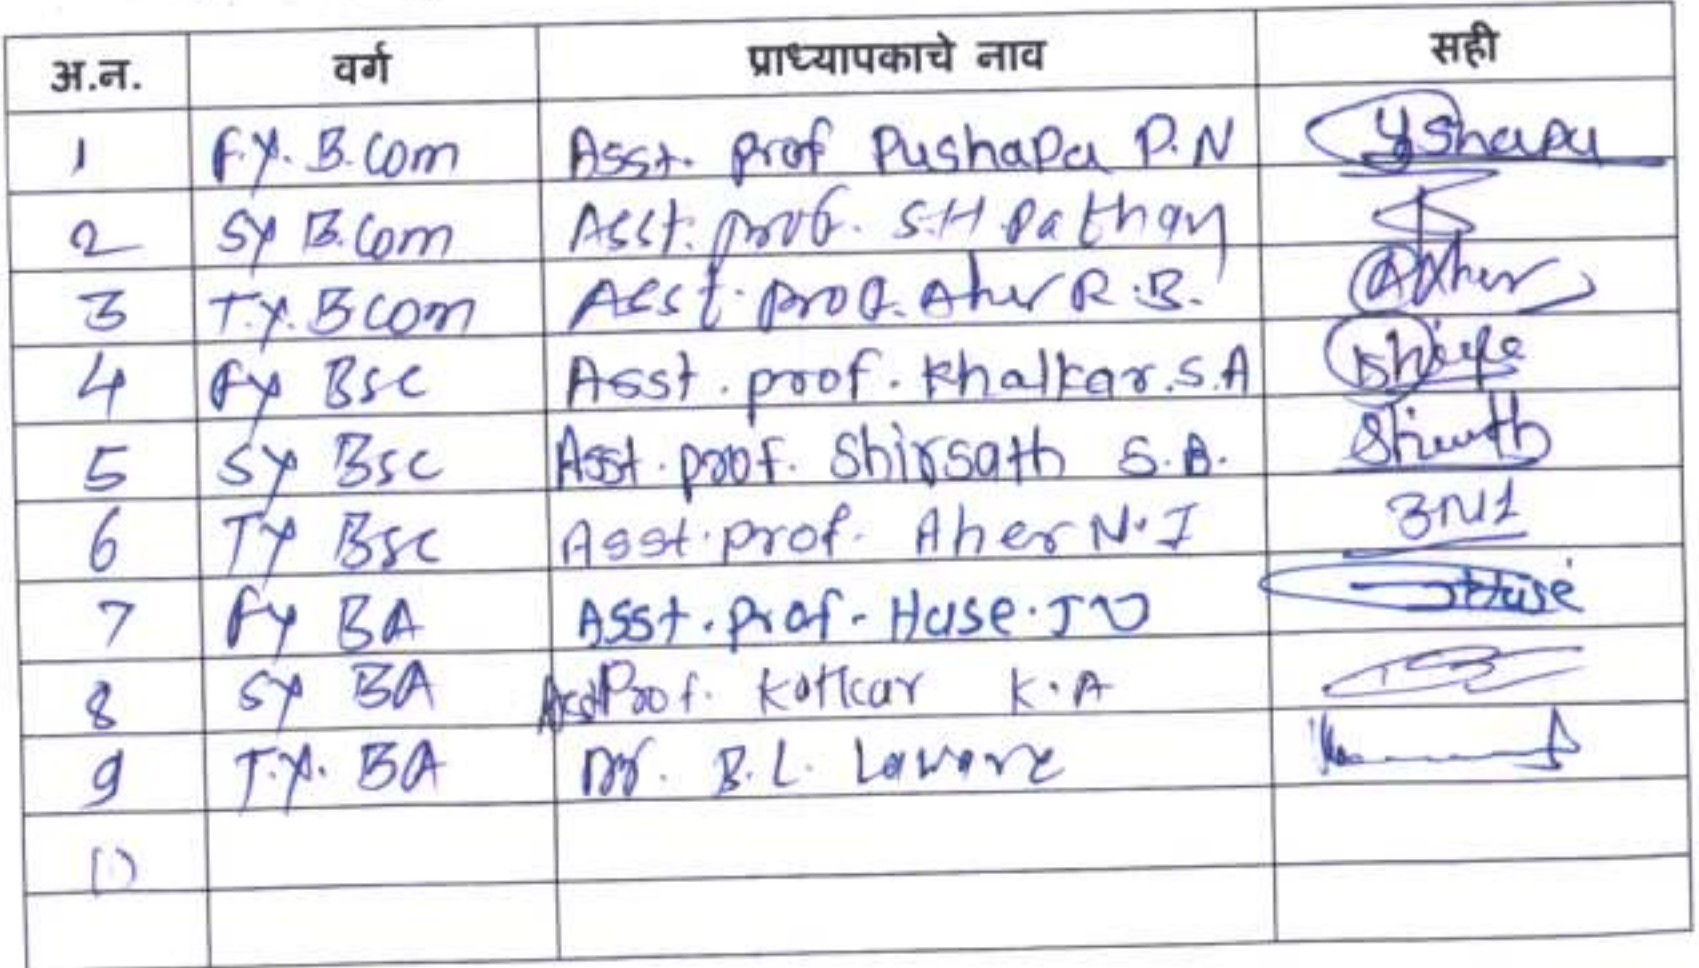 अ.न. वर्ग प्राध्यापकाचे नाव सही
1 F.Y. B.Com Asst. prof Pushapa P.N
2 SY B.Com Asst. prof. S.H Pathan
3 T.Y. B com Asst. prof. Aher R.B.
4 FY Bsc Asst. prof. Khalkar.S.A
5 SY Bsc Asst. prof. Shirsath S.A.
6 TY Bsc Asst. prof. Aher N.J
7 FY BA Asst. prof. Hase. J V
8 SY BA Asst Prof. Kotkar K.A
9 T.Y. BA Dr. B.L.